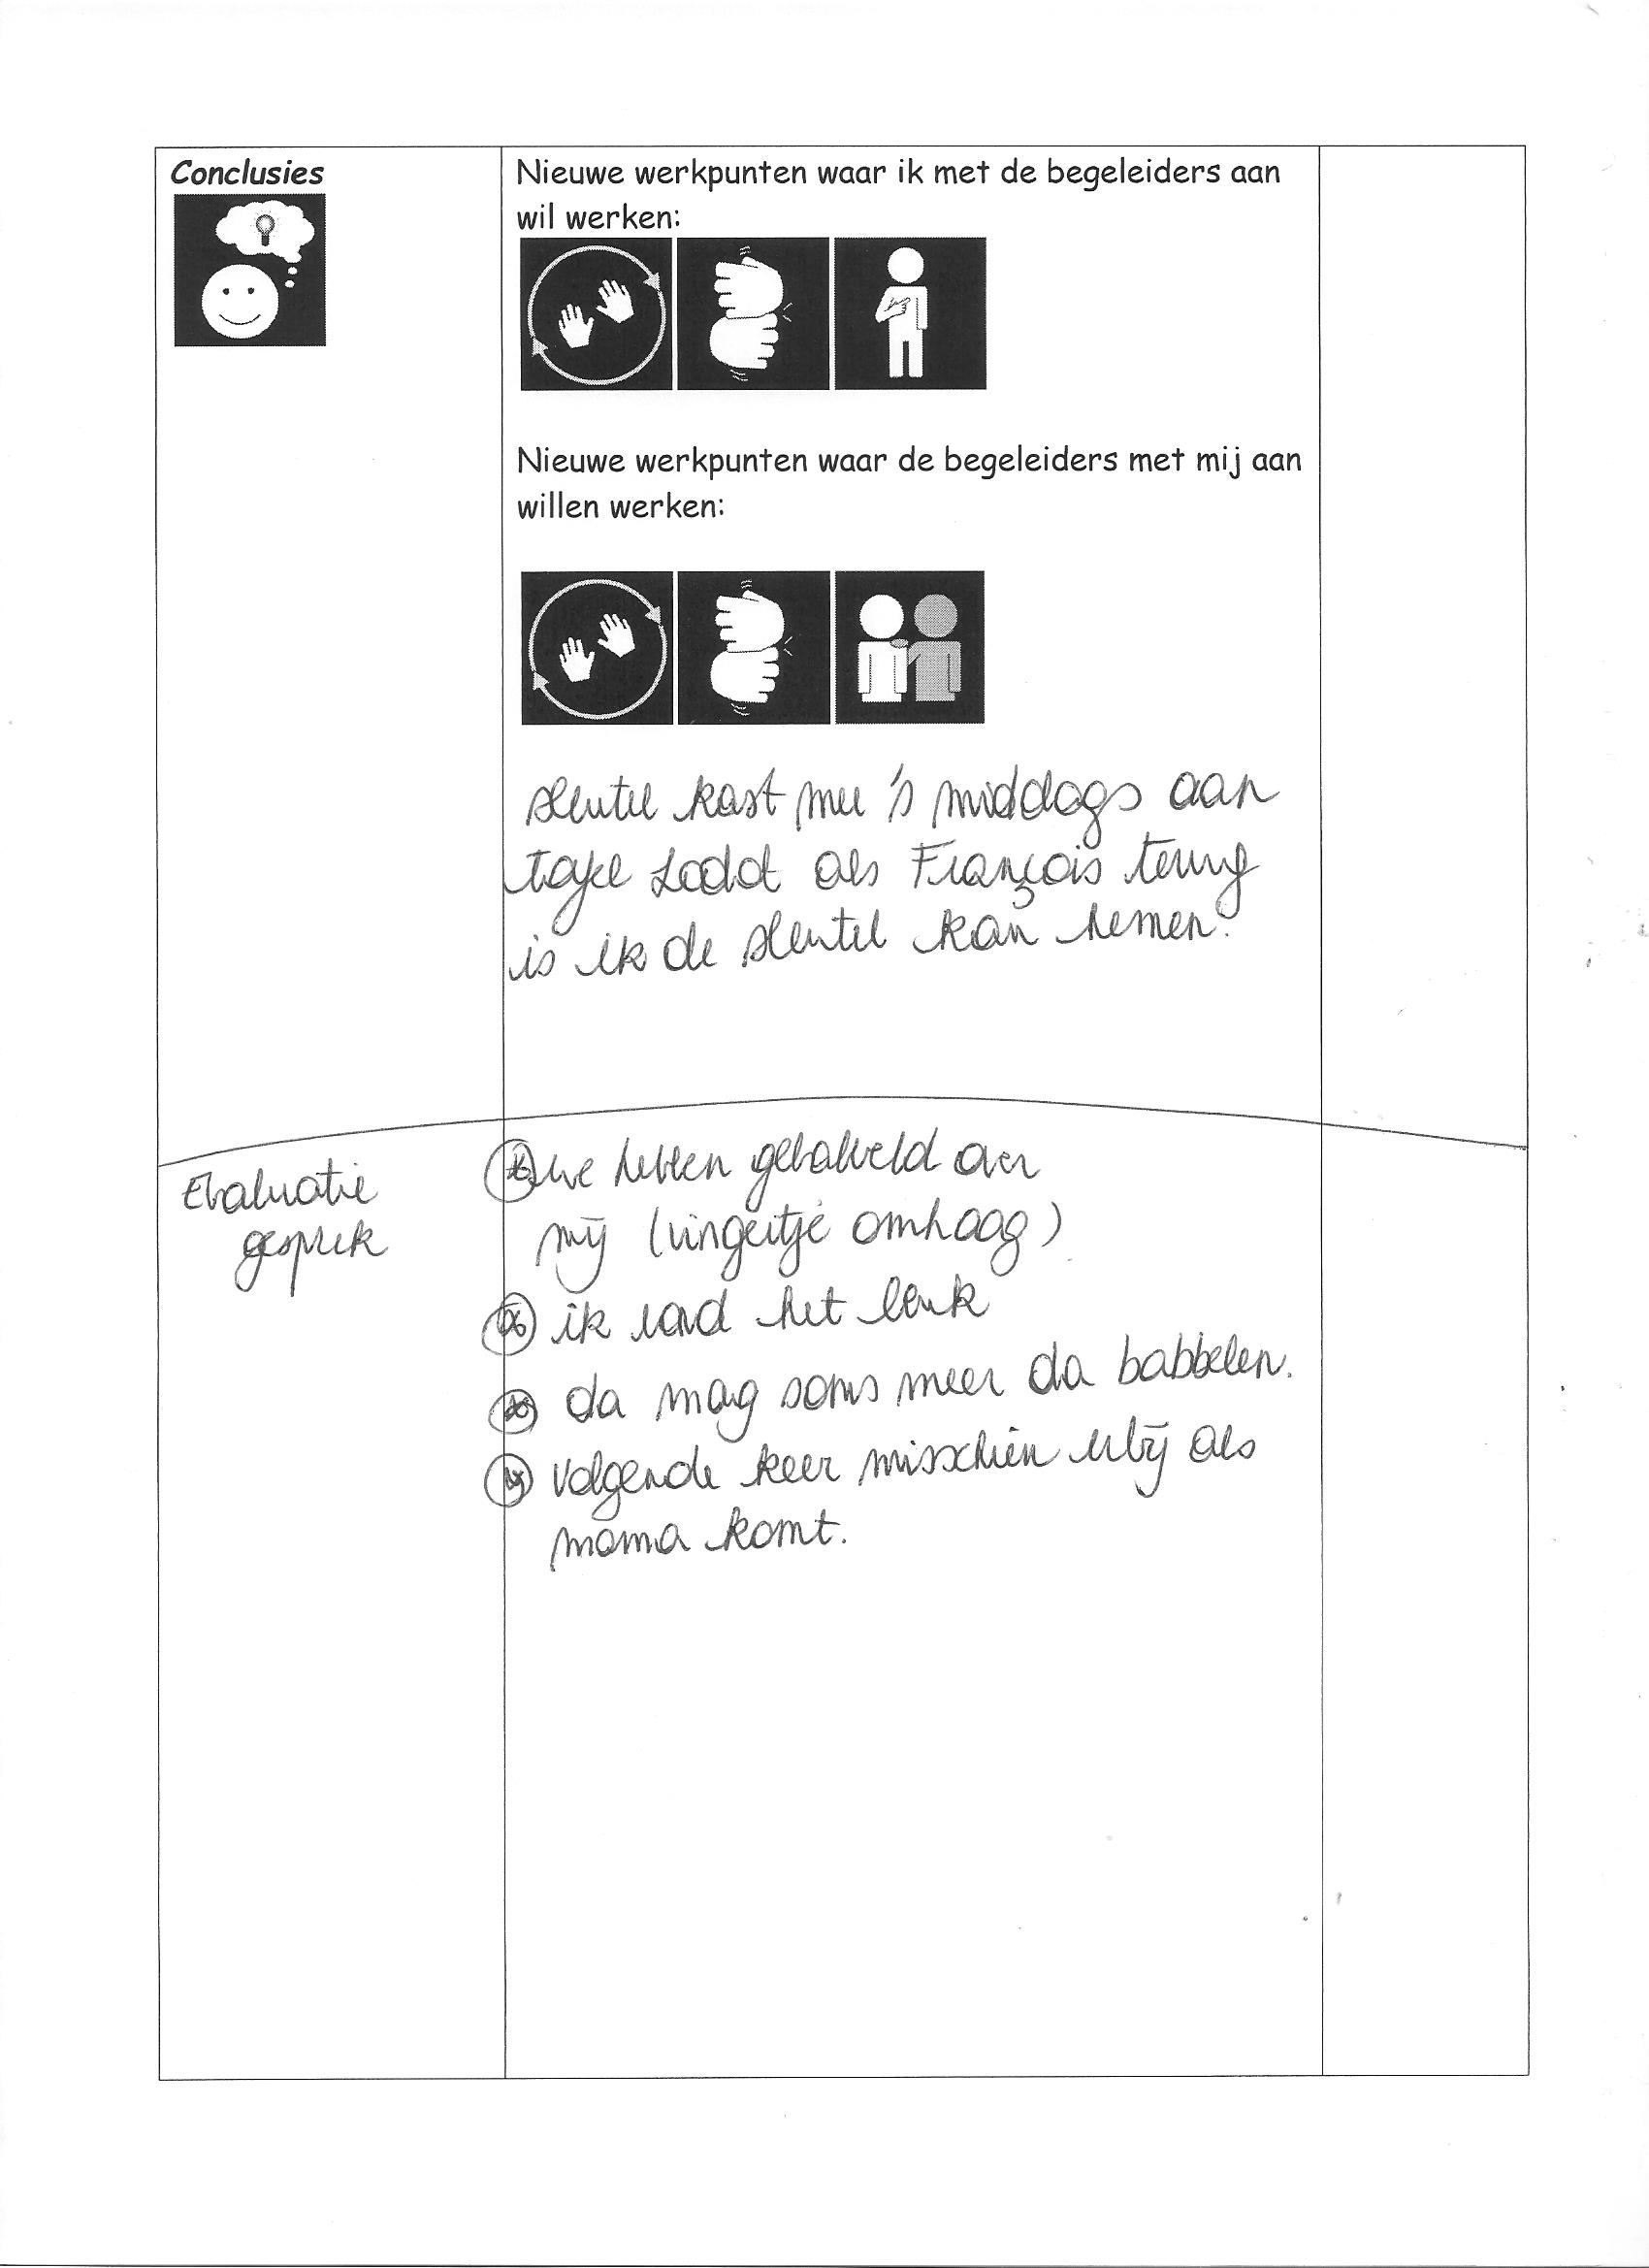 Conclusies
Nieuwe werkpunten waar ik met de begeleiders aan
wil werken:
Nieuwe werkpunten waar de begeleiders met mij aan
willen werken:
sleutel kast mee 's middags aan
tafel zodat als François terug
is ik de sleutel kan nemen.
Evaluatie
gesprek
we hebben gebabbeld over
mij (vingertje omhoog)
ik vond het leuk
da mag soms meer da babbelen.
volgende keer misschien erbij als
mama komt.